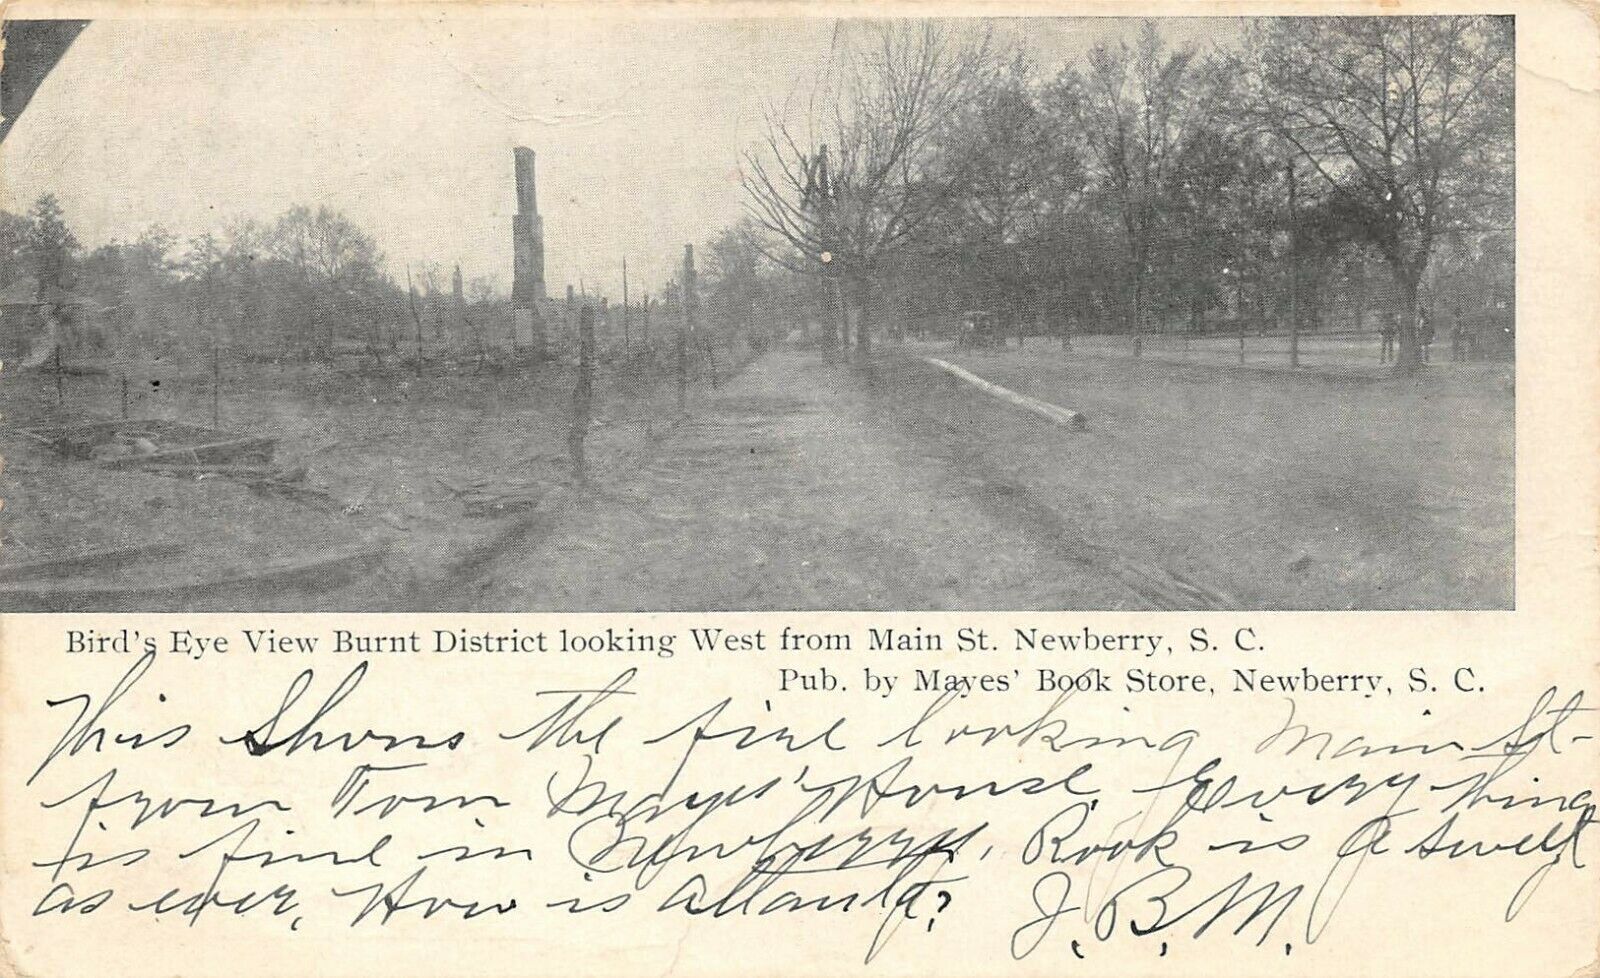 Bird's Eye View Burnt District looking West from Main St. Newberry, S. C.
Pub. by Mayes' Book Store, Newberry, S. C.
This Shows the fire looking Main St-
from Tom Mayes' House. Everything
is fine in Newberry. Rook is a swell
as ever, How is Atlanta?
J. B. M.